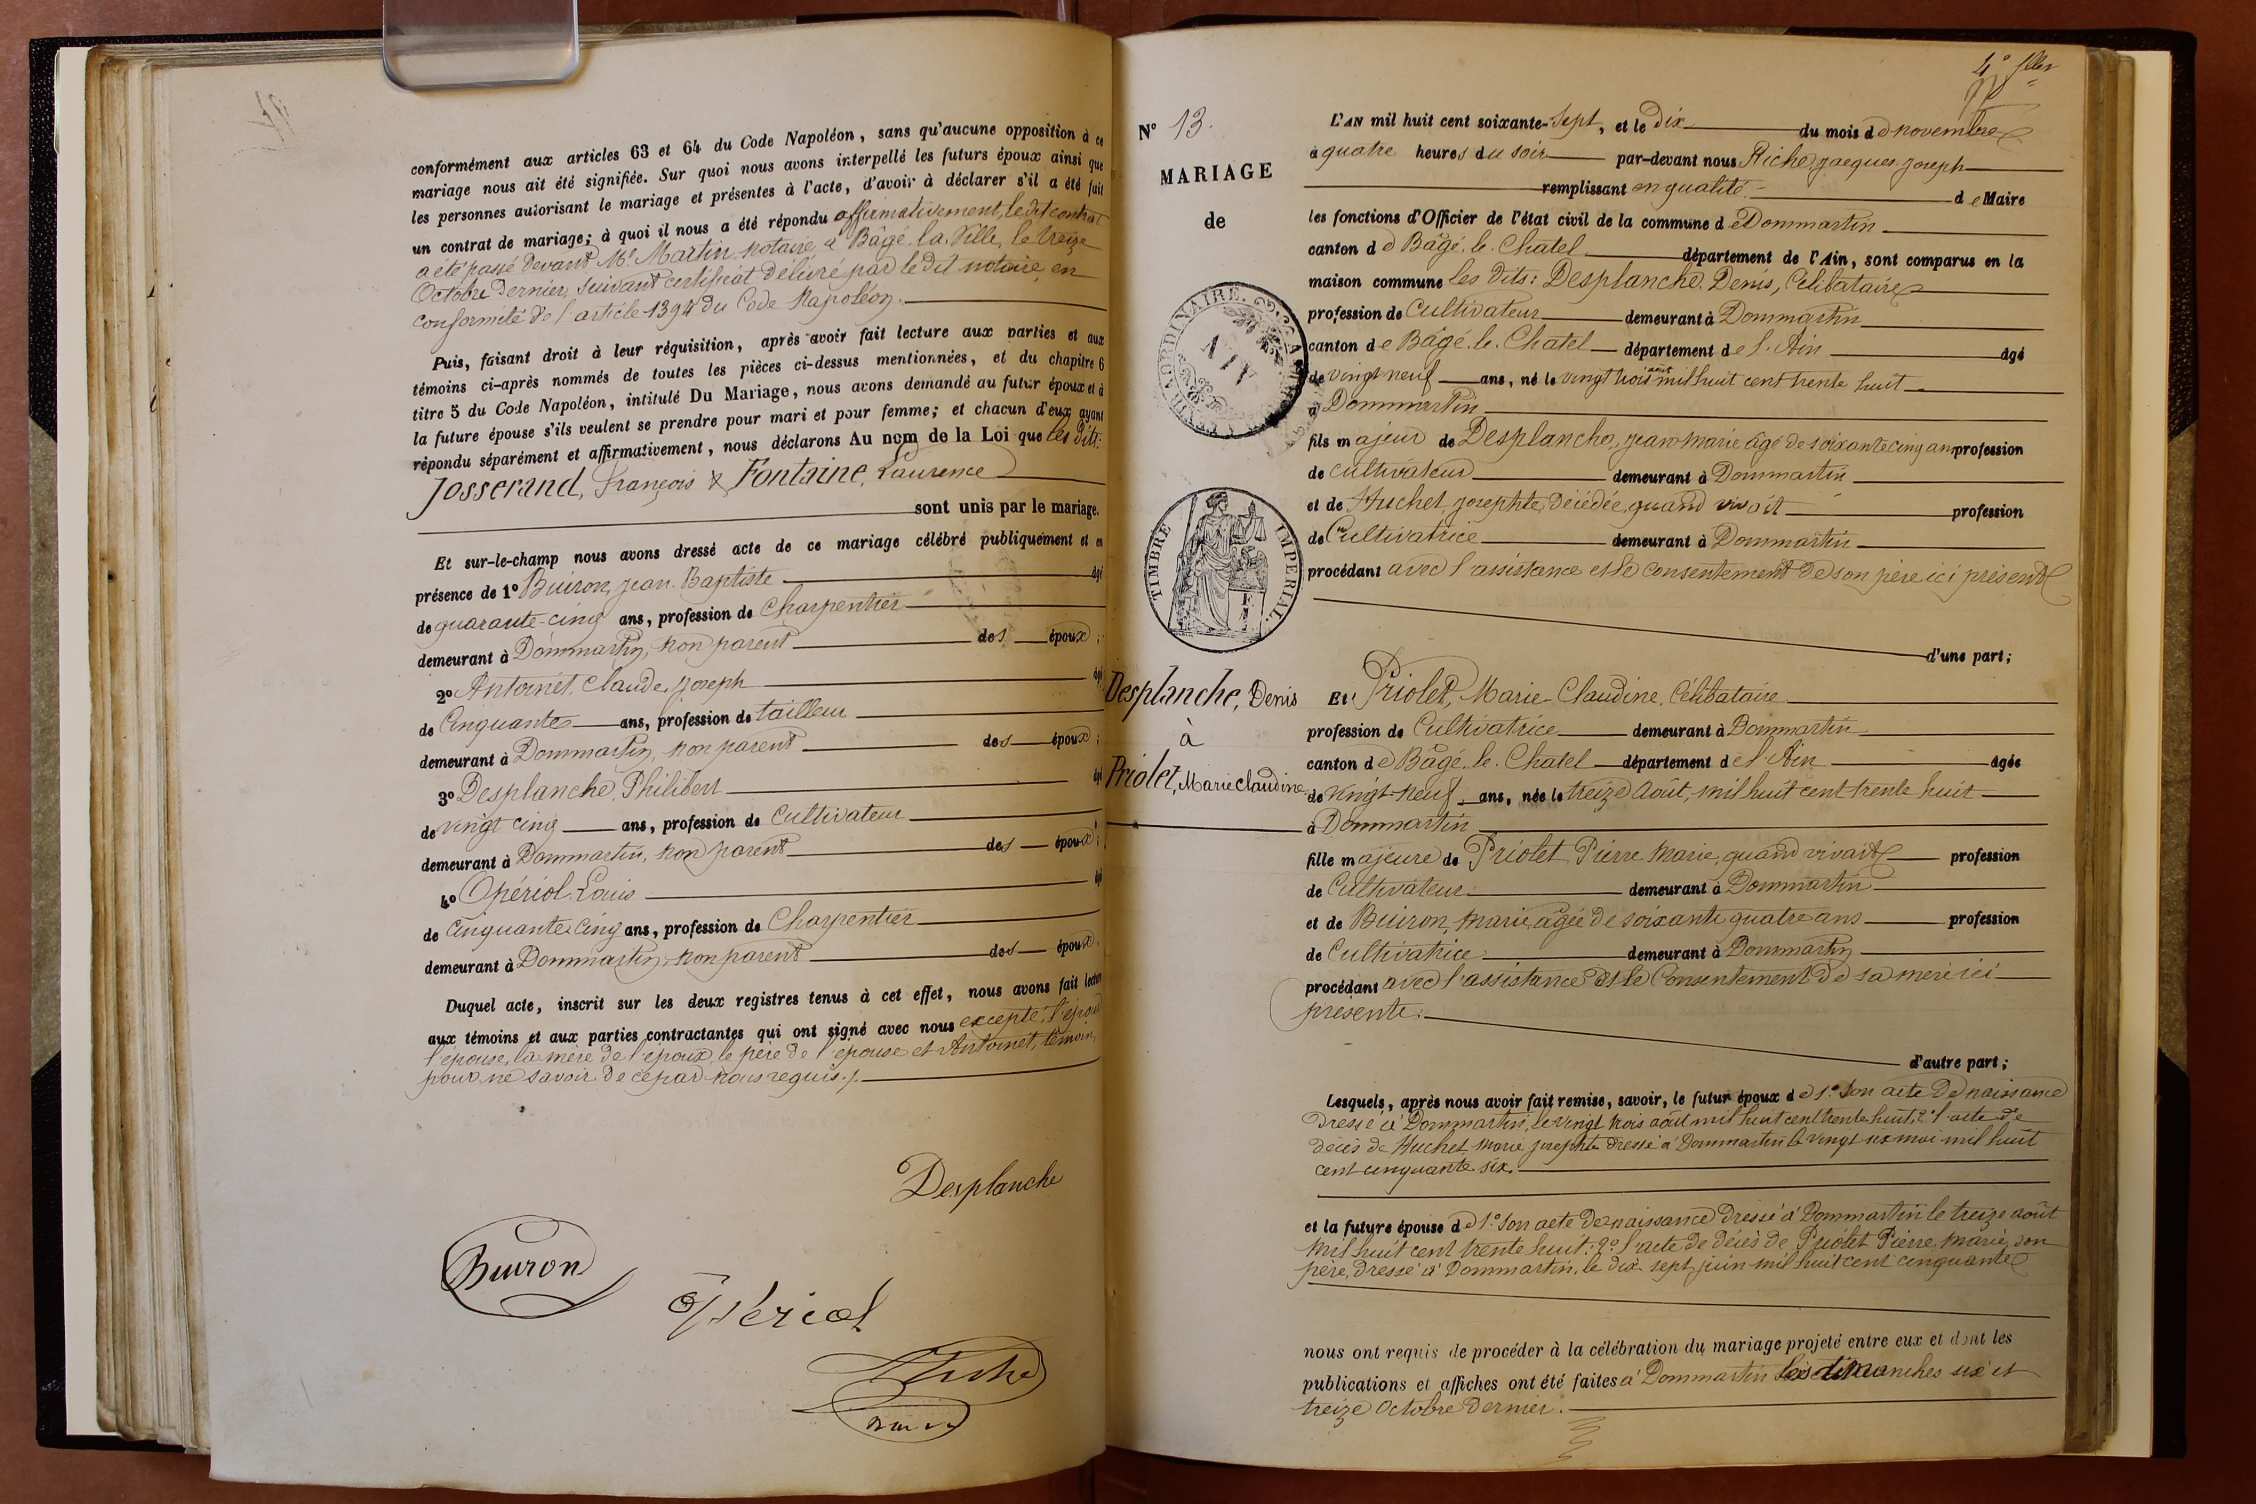 conformément aux articles 63 et 64 du Code Napoléon, sans qu'aucune opposition à ce
mariage nous ait été signifiée. Sur quoi nous avons interpellé les futurs époux ainsi que
les personnes autorisant le mariage et présentes à l'acte, d'avoir à déclarer s'il a été fait
un contrat de mariage; à quoi il nous a été répondu affirmativement, ledit contrat
a été passé devant Me Martin notaire, à Bâgé-la-Ville, le treize
Octobre dernier, suivant certificat délivré par le dit notaire, en
conformité de l'article 1394 du Code Napoléon.
Puis, faisant droit à leur réquisition, après avoir fait lecture aux parties et aux
témoins ci-après nommés de toutes les pièces ci-dessus mentionnées, et du chapitre 6
titre 5 du Code Napoléon, intitulé Du Mariage, nous avons demandé au futur époux et à
la future épouse s'ils veulent se prendre pour mari et pour femme; et chacun d'eux ayant
répondu séparément et affirmativement, nous déclarons Au nom de la Loi que les dits:
Josserand, François & Fontaine, Laurence
sont unis par le mariage.
Et sur-le-champ nous avons dressé acte de ce mariage célébré publiquement et en
présence de 1º Buiron, jean Baptiste âgé
de quarante-cinq ans, profession de Charpentier
demeurant à Dommartin, non parent des époux;
2º Antoinet, Claude, joseph âgé
de Cinquante ans, profession de tailleur
demeurant à Dommartin, non parent des époux;
3º Desplanche, Philibert âgé
de vingt cinq ans, profession de Cultivateur
demeurant à Dommartin, non parent des époux;
4º Opériol Louis âgé
de Cinquante Cinq ans, profession de Charpentier
demeurant à Dommartin, non parent des époux.
Duquel acte, inscrit sur les deux registres tenus à cet effet, nous avons fait lecture
aux témoins et aux parties contractantes qui ont signé avec nous excepté: l'époux
l'épouse, la mère de l'époux, le père de l'épouse et Antoinet, témoin,
pour ne savoir de ce par nous requis.
Desplanche
Buiron
Opériol
Riche
maire
4e
Nº 13.
MARIAGE
de
TIMBRE IMPERIAL
Desplanche, Denis
à
Priolet, Marie Claudine
L'AN mil huit cent soixante-sept, et le dix du mois de novembre
à quatre heures du soir par-devant nous Riche, jacques joseph
remplissant en qualité de Maire
les fonctions d'Officier de l'état civil de la commune de Dommartin
canton de Bâgé-le-Chatel département de l'Ain, sont comparus en la
maison commune les dits: Desplanche, Denis, Célibataire
profession de Cultivateur demeurant à Dommartin
canton de Bâgé-le-Chatel département de l'Ain âgé
de vingt neuf ans, né le vingt trois août mil huit cent trente huit
à Dommartin
fils majeur de Desplanche, jean-marie âgé de soixante cinq ans profession
de cultivateur demeurant à Dommartin
et de Huchet, josephte, décédée, quand vivait profession
de Cultivatrice demeurant à Dommartin
procédant avec l'assistance et le consentement de son père ici présent
d'une part;
Et Priolet, Marie-Claudine, Célibataire
profession de Cultivatrice demeurant à Dommartin
canton de Bâgé-le-Chatel département de l'Ain âgée
de vingt-neuf ans, née le treize Août, mil huit cent trente huit
à Dommartin
fille majeure de Priolet, Pierre Marie, quand vivait profession
de Cultivateur demeurant à Dommartin
et de Buiron, Marie, âgée de soixante quatre ans profession
de Cultivatrice demeurant à Dommartin
procédant avec l'assistance et le Consentement de sa mère ici
présente.
d'autre part;
Lesquels, après nous avoir fait remise, savoir, le futur époux de 1º son acte de naissance
dressé à Dommartin, le vingt trois août mil huit cent trente huit; 2º l'acte de
décès de Huchet, Marie josephte dressé à Dommartin le vingt six mai mil huit
cent cinquante six.
et la future épouse de 1º son acte de naissance dressé à Dommartin le treize août
mil huit cent trente huit: 2º l'acte de décès de Priolet Pierre, Marie, son
père, dressé à Dommartin, le dix sept juin mil huit cent cinquante
nous ont requis de procéder à la célébration du mariage projeté entre eux et dont les
publications et affiches ont été faites à Dommartin les dimanches six et
treize Octobre dernier.